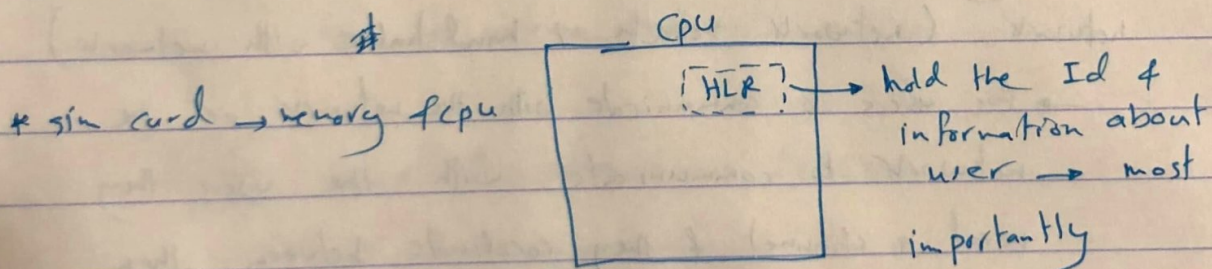 #
Cpu
* sim card → memory & cpu
HLR → hold the Id &
information about
user → most
importantly